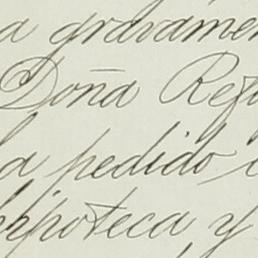 a gravamen
Doña Refu
la pedido
hipoteca y